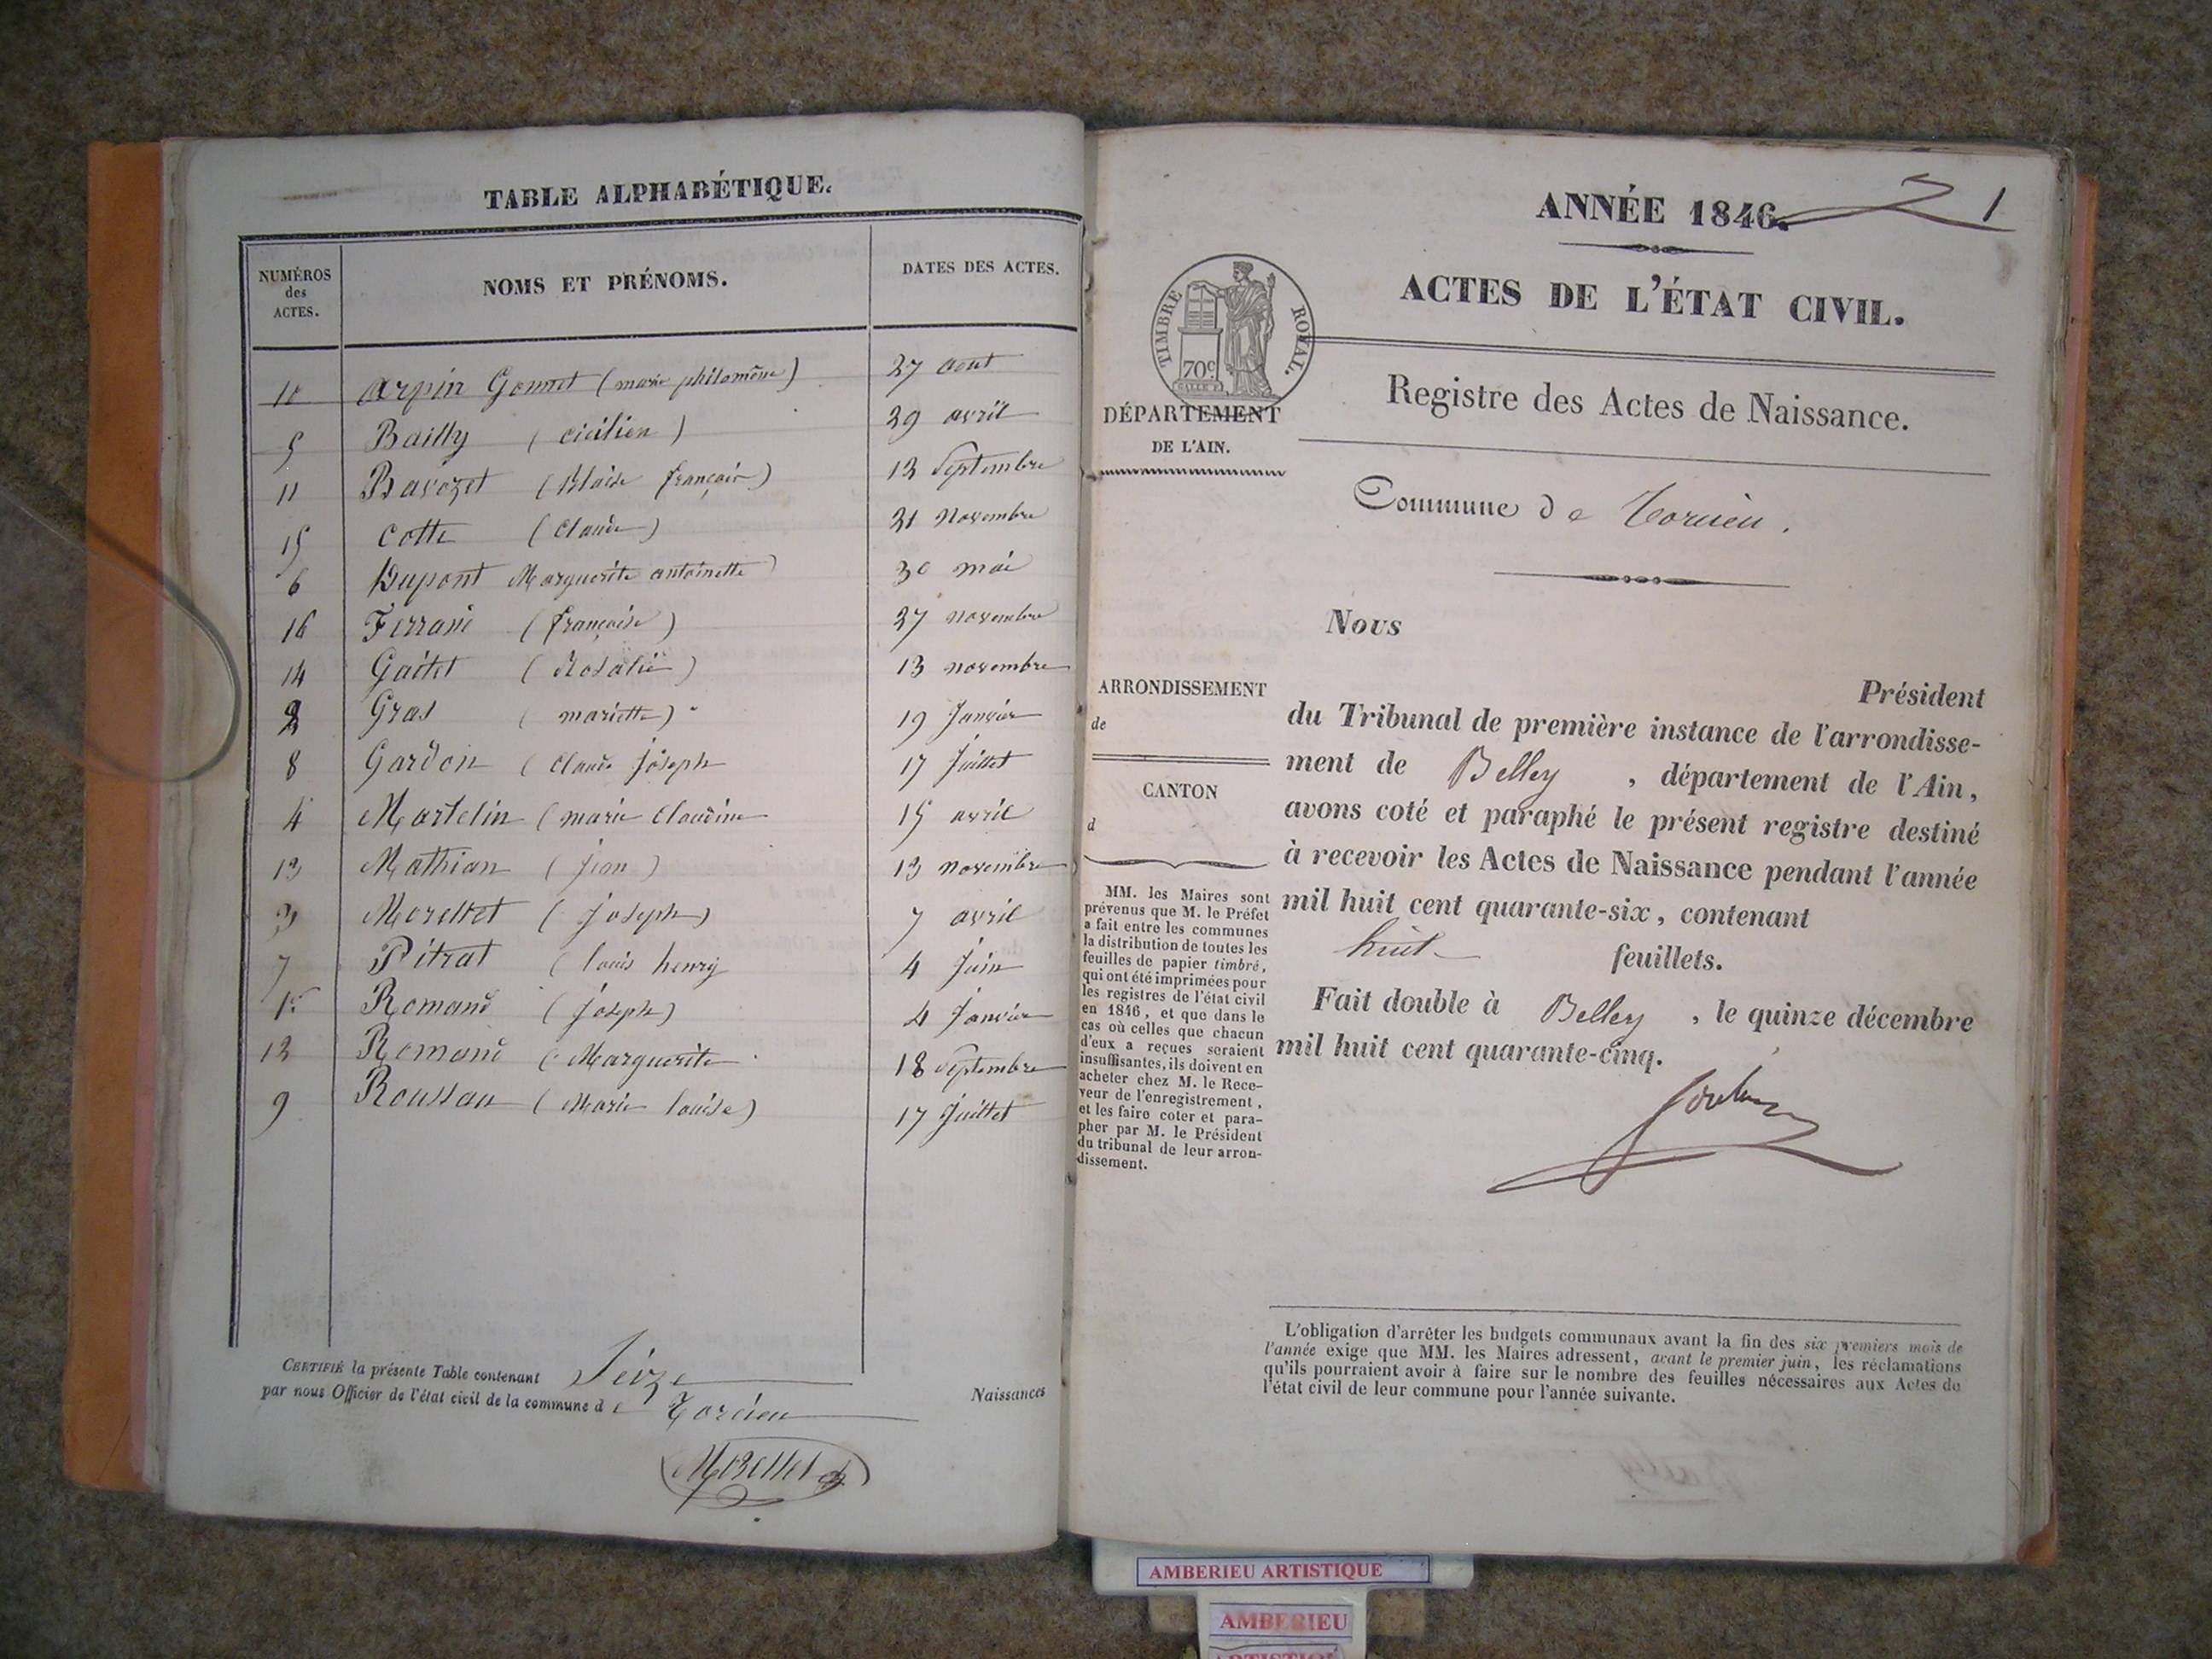 TABLE ALPHABÉTIQUE.
NUMÉROS des ACTES. NOMS ET PRÉNOMS. DATES DES ACTES.
10 Arpin Gonnet (marie philomène) 27 aout
5 Bailly (cicilien) 29 avril
11 Bavozet (Blaise françois) 12 Septembre
15 Cotte (Claude) 21 Novembre
6 Dupont Marguerite antoinette) 30 mai
16 Ferrand (françoise) 27 novembre
14 Gaitet (Rosalie) 13 novembre
2 Gras (mariette) 19 Janvier
8 Gardon (Claude Joseph 17 Juillet
4 Martelin (marie Claudine 15 avril
13 Mathian (jean) 13 novembre
3 Morellet (joseph) 7 avril
7 Pitrat (louis henry 4 Juin
Romand (joseph) 4 Janvier
12 Romand (Marguerite 18 Septembre
9 Roussau (Marie louise) 17 Juillet
CERTIFIÉ la présente Table contenant Seize Naissances
par nous Officier de l'état civil de la commune de Torcieu
Morellet
ANNÉE 1846. 1
ACTES DE L'ÉTAT CIVIL.
TIMBRE ROYAL.
70c
DÉPARTEMENT
DE L'AIN.
Registre des Actes de Naissance.
Commune de Torcieu.
Nous
Président
du Tribunal de première instance de l'arrondisse-
ment de Belley, département de l'Ain,
avons coté et paraphé le présent registre destiné
à recevoir les Actes de Naissance pendant l'année
mil huit cent quarante-six, contenant
huit feuillets.
Fait double à Belley, le quinze décembre
mil huit cent quarante-cinq.
ARRONDISSEMENT
de
CANTON
d
MM. les Maires sont
prévenus que M. le Préfet
a fait entre les communes
la distribution de toutes les
feuilles de papier timbré,
qui ont été imprimées pour
les registres de l'état civil
en 1846, et que dans le
cas où celles que chacun
d'eux a reçues seraient
insuffisantes, ils doivent en
acheter chez M. le Rece-
veur de l'enregistrement,
et les faire coter et para-
pher par M. le Président
du tribunal de leur arron-
dissement.
L'obligation d'arrêter les budgets communaux avant la fin des six premiers mois de
l'année exige que MM. les Maires adressent, avant le premier juin, les réclamations
qu'ils pourraient avoir à faire sur le nombre des feuilles nécessaires aux Actes de
l'état civil de leur commune pour l'année suivante.
AMBERIEU ARTISTIQUE
AMBERIEU
ARTISTIQUE